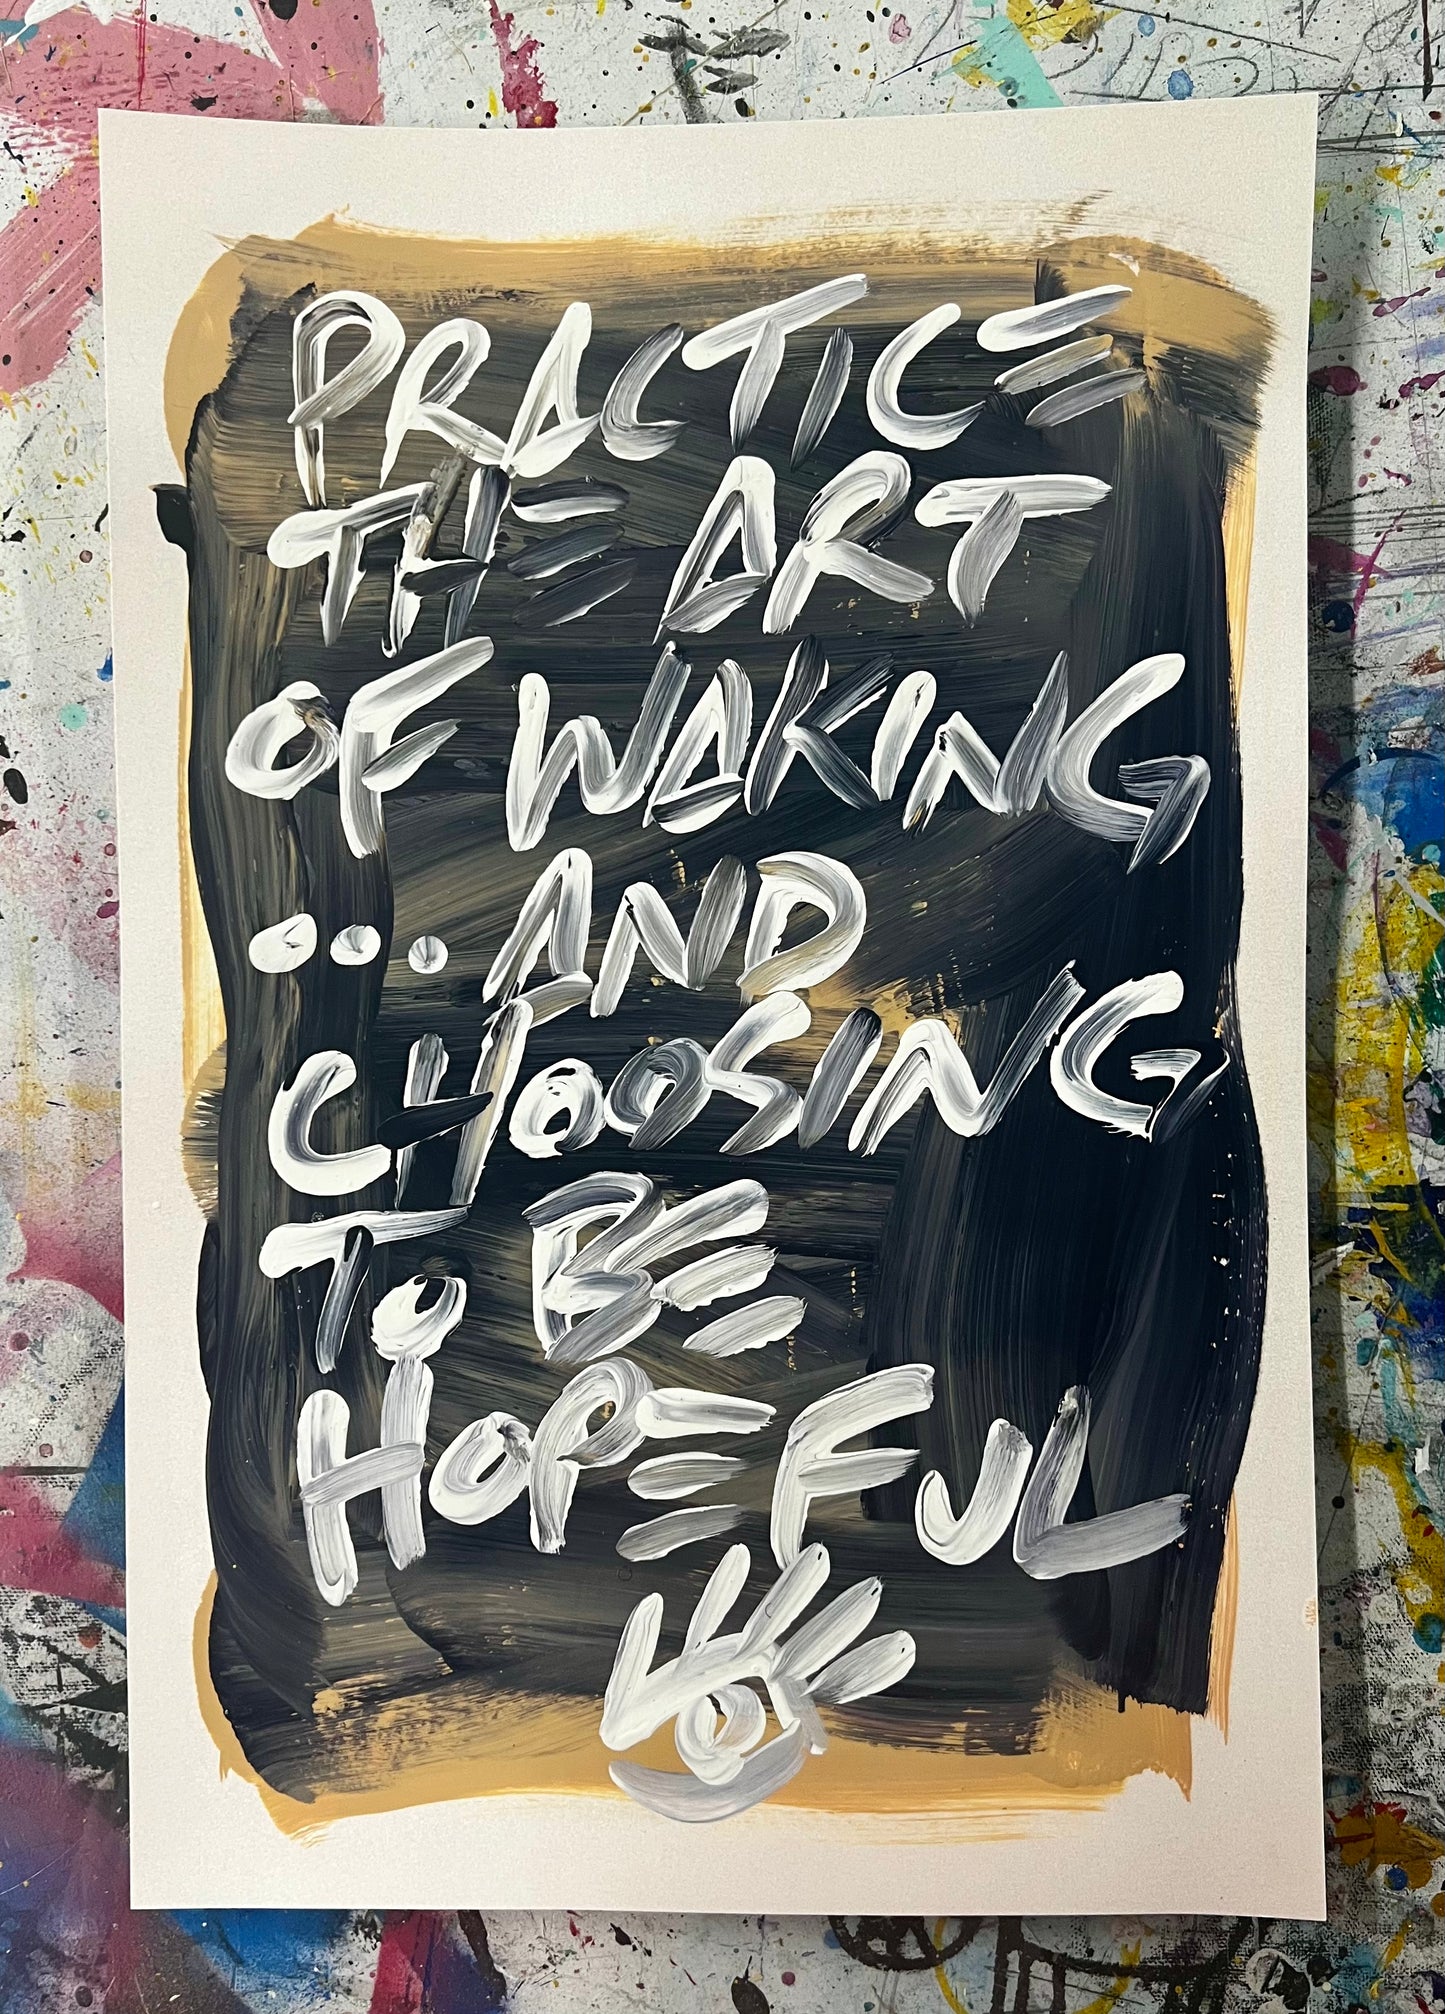 PRACTICE
THE ART
OF WAKING
... AND
CHOOSING
TO BE
HOPEFUL